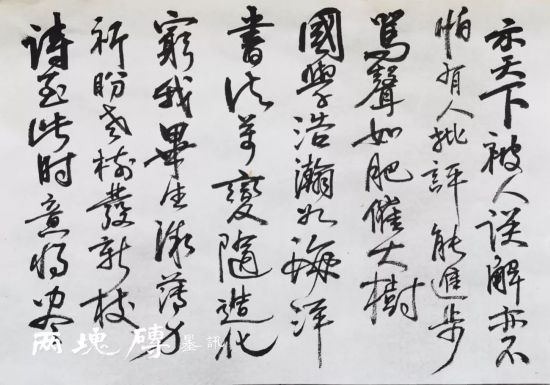 示天下被人误解亦不
怕有人批評能進步
駡聲如肥催大樹
國學浩瀚如海洋
書法萬變隨造化
窮我畢生微薄力
祈盼老樹發新枝
诗至此时意
兩塊磚墨訊